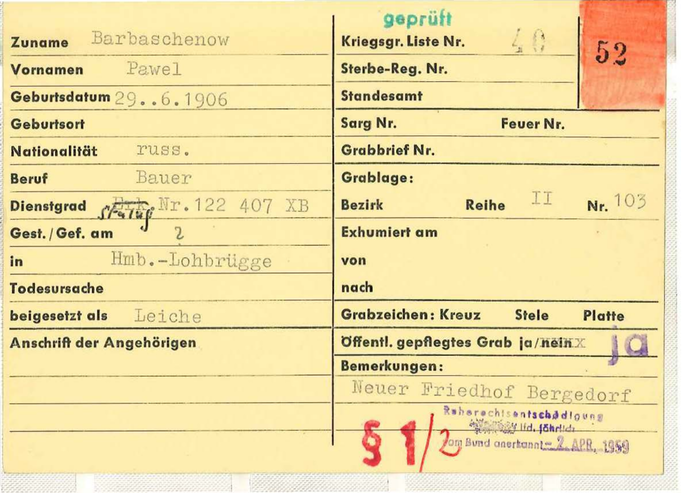 geprüft
Zuname Barbaschenow
Vornamen Pawel
Geburtsdatum 29..6.1906
Geburtsort
Nationalität russ.
Beruf Bauer
Dienstgrad Erk.Nr.122 407 XB
Stalag
Gest./Gef. am 2
in Hmb.-Lohbrügge
Todesursache
beigesetzt als Leiche
Anschrift der Angehörigen
Kriegsgr. Liste Nr. 40
52
Sterbe-Reg. Nr.
Standesamt
Sarg Nr. Feuer Nr.
Grabbrief Nr.
Grablage:
Bezirk Reihe II Nr. 103
Exhumiert am
von
nach
Grabzeichen: Kreuz Stele Platte
Öffentl. gepflegtes Grab ja/nein ja
Bemerkungen:
Neuer Friedhof Bergedorf
Ruherechtsentschädigung
lfd. jährlich
vom Bund anerkannt - 2. APR. 1959
§ 1/2